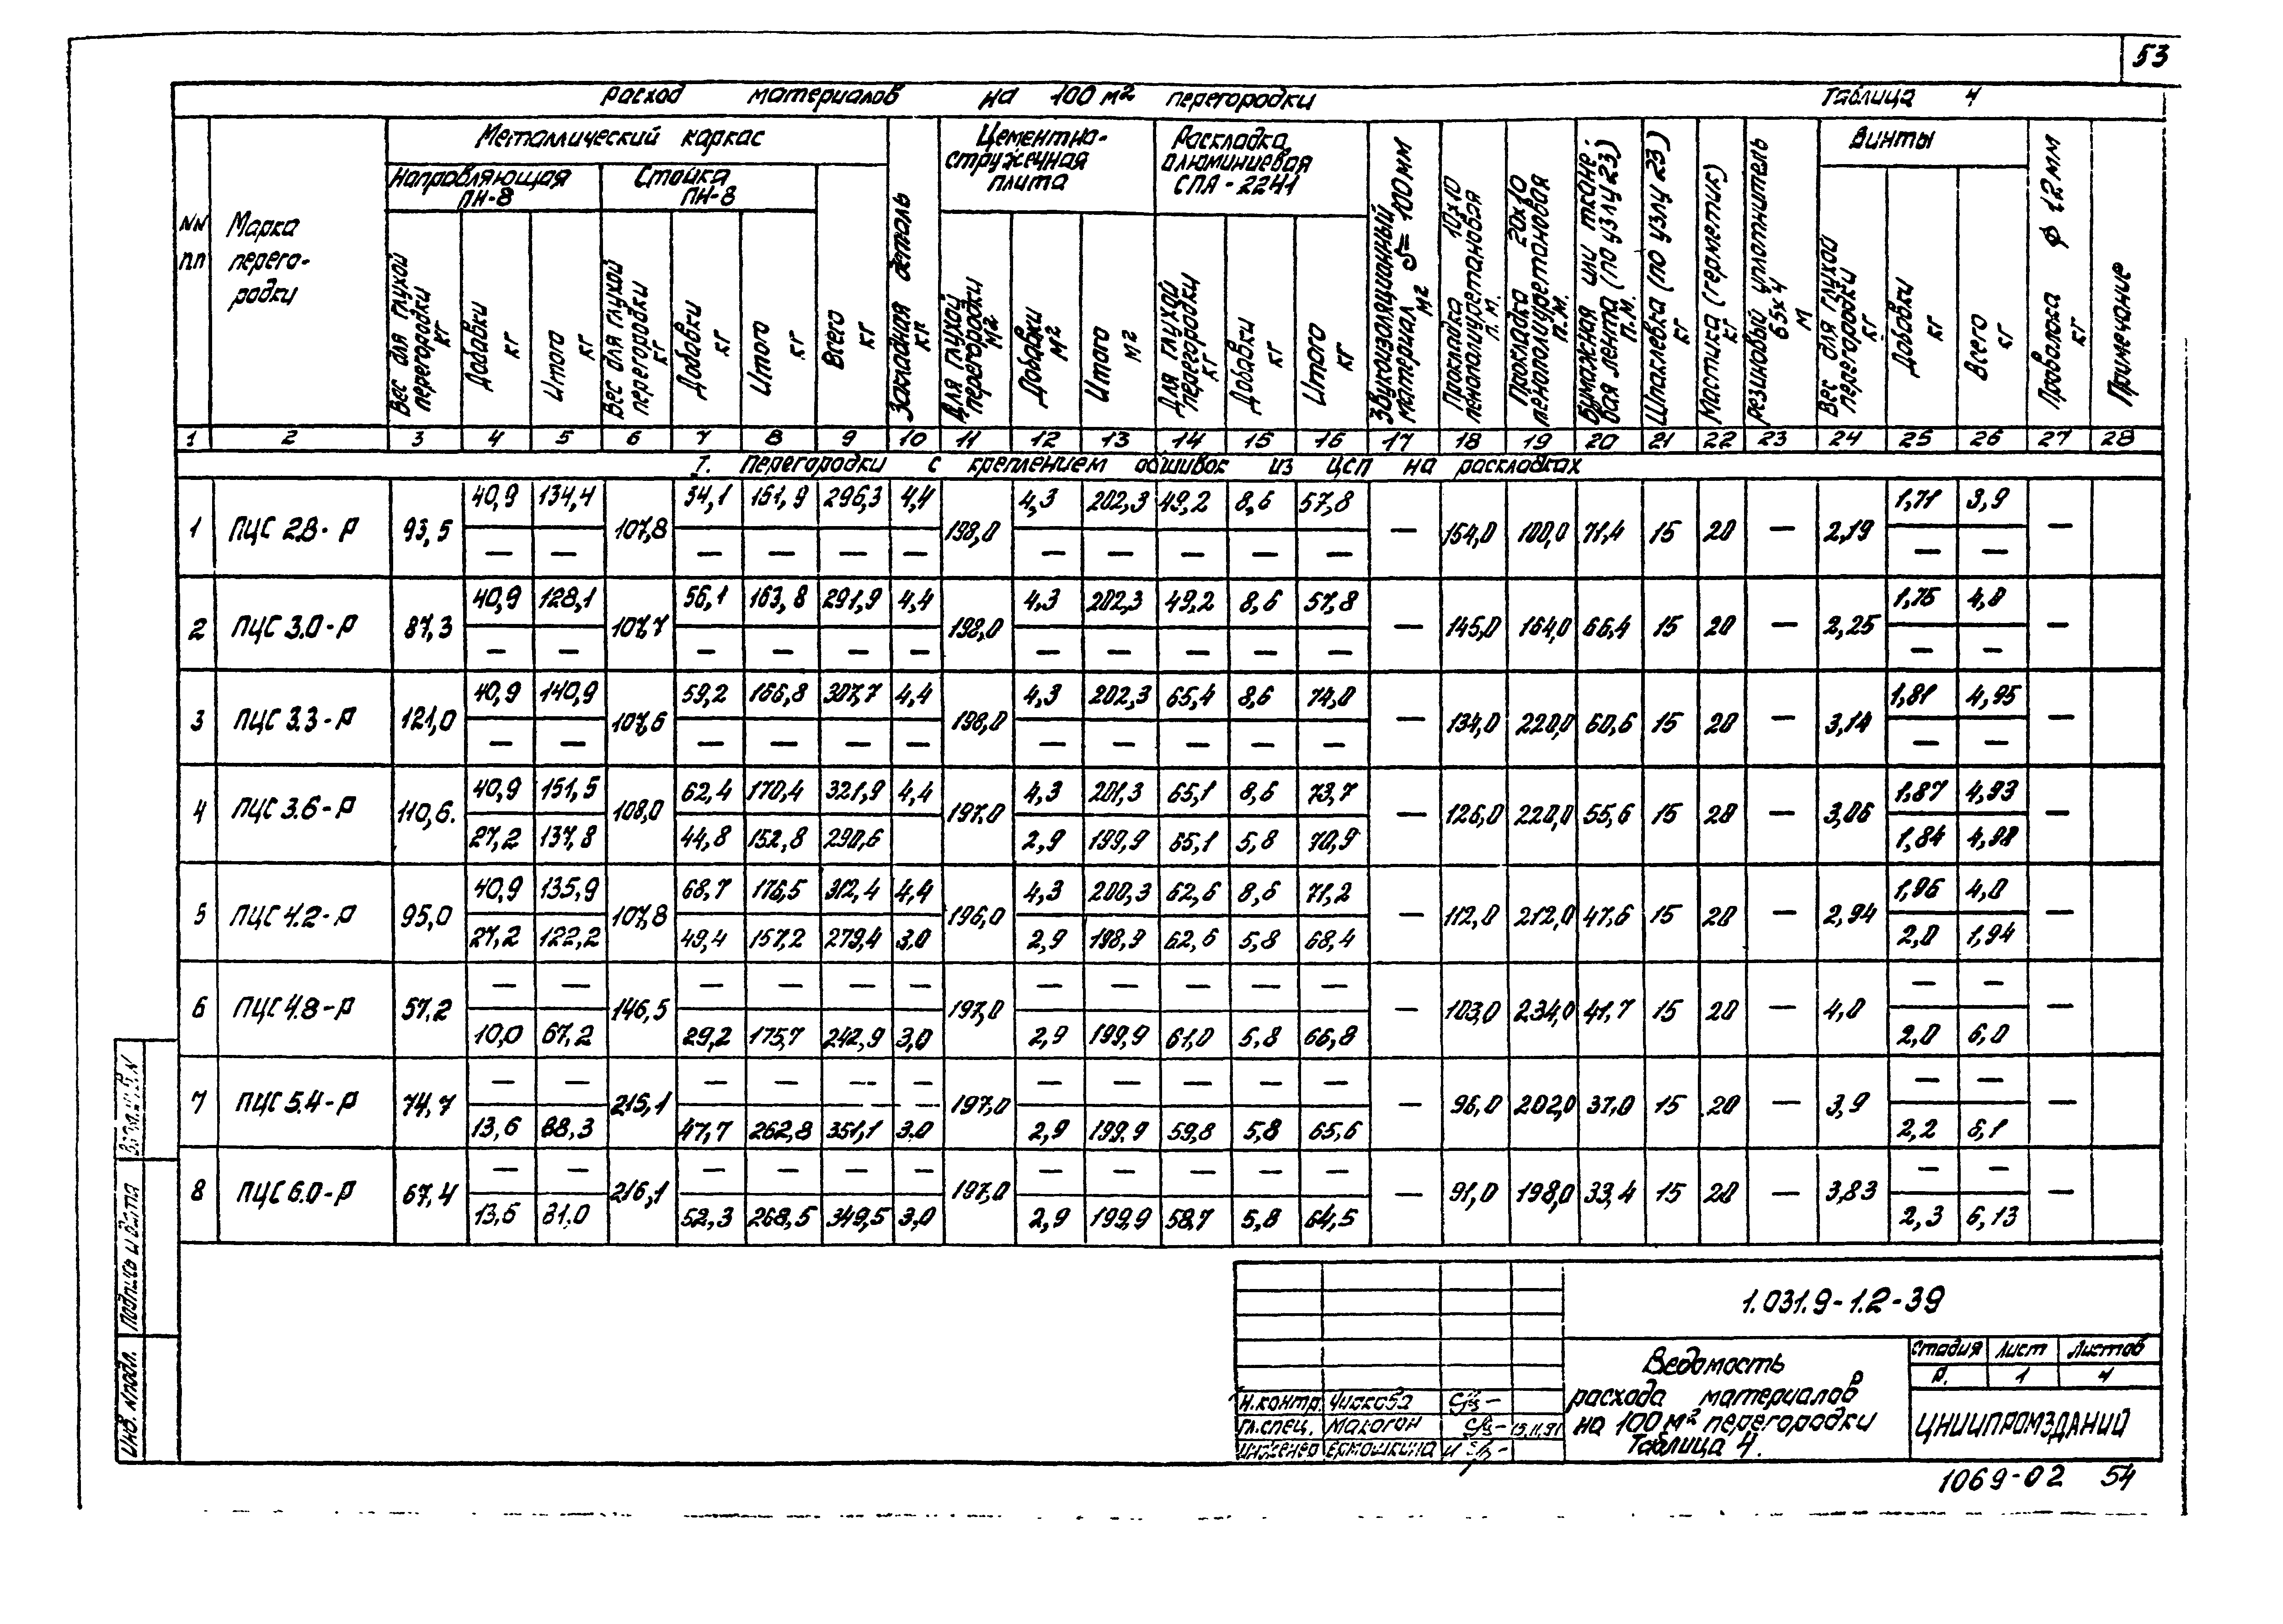 53
расход материалов на 100 м² перегородки Таблица 4
NN пп
Марка перего-родки
Металлический каркас
Направляющая ПН-8
Стойка ПН-8
Вес для глухой перегородки кг
Добавки кг
Итого кг
Вес для глухой перегородки кг
Добавки кг
Итого кг
Всего кг
Закладная деталь кг
Цементно-стружечная плита
Для глухой перегородки м²
Добавки м²
Итого м²
Раскладка алюминиевая СПА-2241
Для глухой перегородки кг
Добавки кг
Итого кг
Звукоизоляционный материал S=100мм м²
Прокладка 10х10 пенополиуретановая п.м.
Прокладка 20х10 пенополиуретановая п.м.
Бумажная или ткане-вая лента (по узлу 23) п.м.
Шпаклевка (по узлу 23) кг
Мастика (герметик) кг
Резиновый уплотнитель 65х4 м
Винты
Вес для глухой перегородки кг
Добавки кг
Всего кг
Проволока ϕ 1.2 мм кг
Примечание
1 2 3 4 5 6 7 8 9 10 11 12 13 14 15 16 17 18 19 20 21 22 23 24 25 26 27 28
I. Перегородки с креплением обшивок из ЦСП на раскладках
40,9 134,4 34,1 151,9 296,3 4,4 4,3 202,3 49,2 8,6 57,8 1,71 3,9
1 ПЦС 2.8-Р 93,5 107,8 198,0 — 154,0 100,0 71,4 15 20 — 2,19 —
— — — — — — — — — — — — —
40,9 128,1 56,1 163,8 291,9 4,4 4,3 202,3 49,2 8,6 57,8 1,75 4,0
2 ПЦС 3.0-Р 87,3 107,7 198,0 — 145,0 164,0 66,4 15 20 — 2,25 —
— — — — — — — — — — — — —
40,9 140,9 59,2 166,8 307,7 4,4 4,3 202,3 65,4 8,6 74,0 1,81 4,95
3 ПЦС 3.3-Р 121,0 107,6 198,0 — 134,0 220,0 60,6 15 20 — 3,14 —
— — — — — — — — — — — — —
40,9 151,5 62,4 170,4 321,9 4,4 4,3 201,3 65,1 8,6 73,7 1,87 4,93
4 ПЦС 3.6-Р 110,6. 108,0 197,0 — 126,0 220,0 55,6 15 20 — 3,06 —
27,2 137,8 44,8 152,8 290,6 2,9 199,9 65,1 5,8 70,9 1,84 4,98
40,9 135,9 68,7 176,5 312,4 4,4 4,3 200,3 62,6 8,6 71,2 1,96 4,0
5 ПЦС 4.2-Р 95,0 107,8 196,0 — 112,0 212,0 47,6 15 20 — 2,94 —
27,2 122,2 49,4 157,2 279,4 3,0 2,9 198,9 62,6 5,8 68,4 2,0 1,94
— — — — — — — — — — — — —
6 ПЦС 4.8-Р 57,2 146,5 197,0 — 103,0 234,0 41,7 15 20 — 4,0 —
10,0 67,2 29,2 175,7 242,9 3,0 2,9 199,9 61,0 5,8 66,8 2,0 6,0
— — — — — — — — — — — — —
7 ПЦС 5.4-Р 74,7 215,1 197,0 — 96,0 202,0 37,0 15 20 — 3,9 —
13,6 88,3 47,7 262,8 351,1 3,0 2,9 199,9 59,8 5,8 65,6 2,2 6,1
— — — — — — — — — — — — —
8 ПЦС 6.0-Р 67,4 216,1 197,0 — 91,0 198,0 33,4 15 20 — 3,83 —
13,6 81,0 52,3 268,5 349,5 3,0 2,9 199,9 58,7 5,8 64,5 2,3 6,13
Подпись и дата
Инв. N подл.
1.031.9-1.2-39
Ведомость
расхода материалов
на 100 м² перегородки
Таблица 4.
Стадия Лист Листов
Р. 1 4
ЦНИИПРОМЗДАНИЙ
Н.контр.
Гл.спец. Макогон 15.11.91
Инженер Ермошкина
1069-02 54